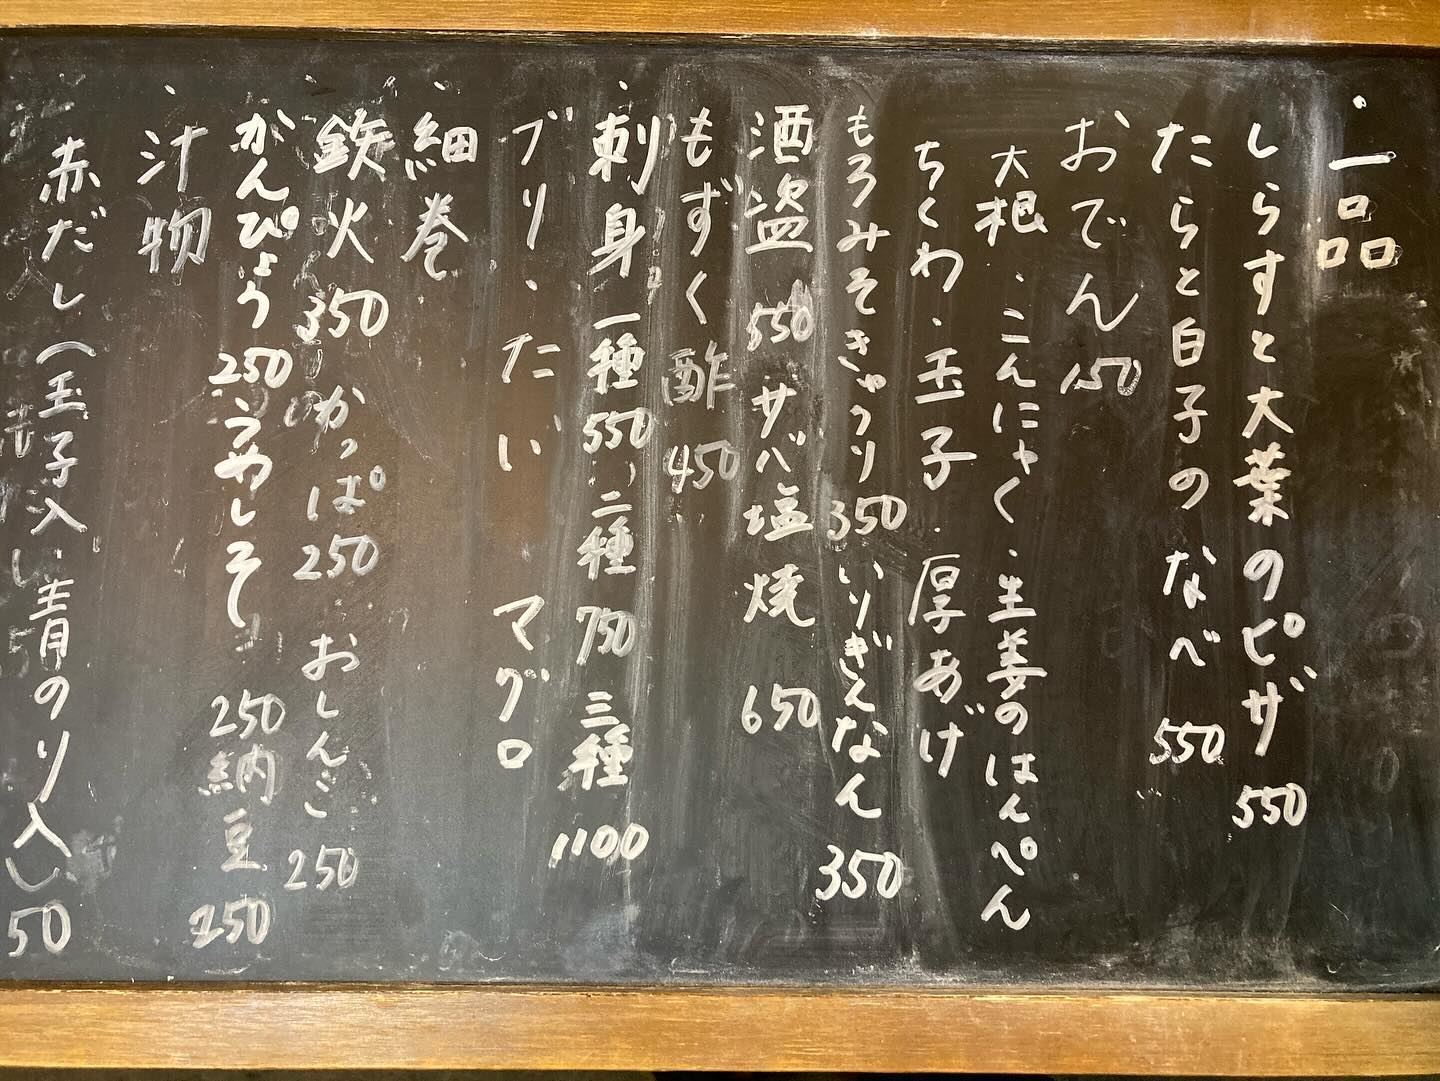 ・一品
しらすと大葉のピザ 550
たらと白子のなべ 550
おでん 150
大根・こんにゃく・生姜のはんぺん
ちくわ・玉子・厚あげ
もろみそきゅうり 350 いりぎんなん 350
酒盗 550 サバ塩焼 650
もずく酢 450
・刺身 一種 550 二種 750 三種 1100
ブリ・たい マグロ
・細巻
鉄火 350 かっぱ 250 おしんこ 250
かんぴょう 250 うめしそ 250 納豆 250
・汁物
赤だし(玉子入り 青のり入り 50